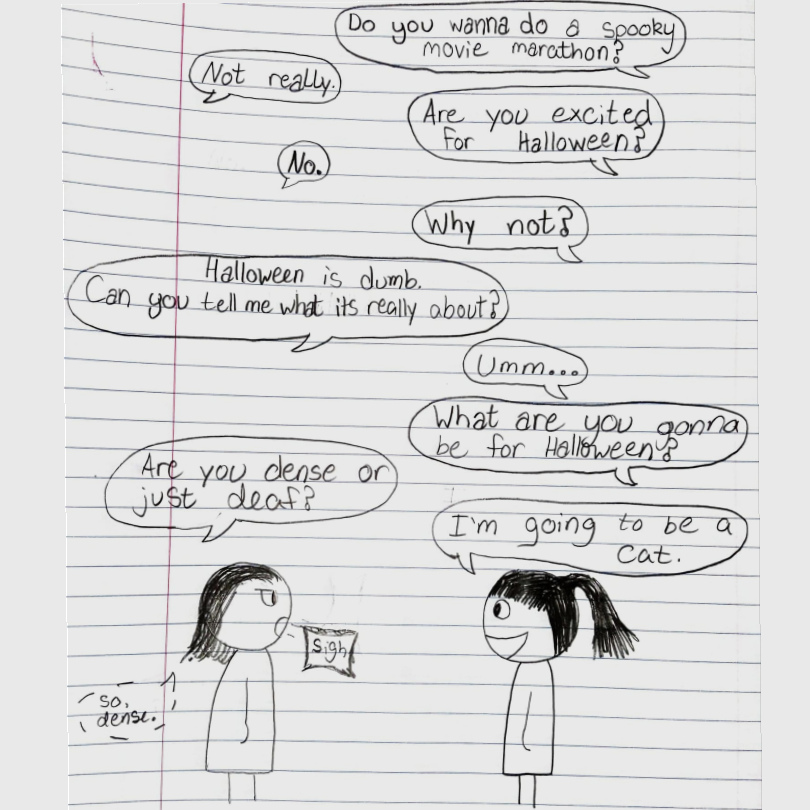 Do you wanna do a spooky
movie marathon?
Not really.
Are you excited
for Halloween?
No.
Why not?
Halloween is dumb.
Can you tell me what its really about?
Umm...
What are you gonna
be for Halloween?
Are you dense or
just deaf?
I'm going to be a
cat.
sigh
so,
dense.